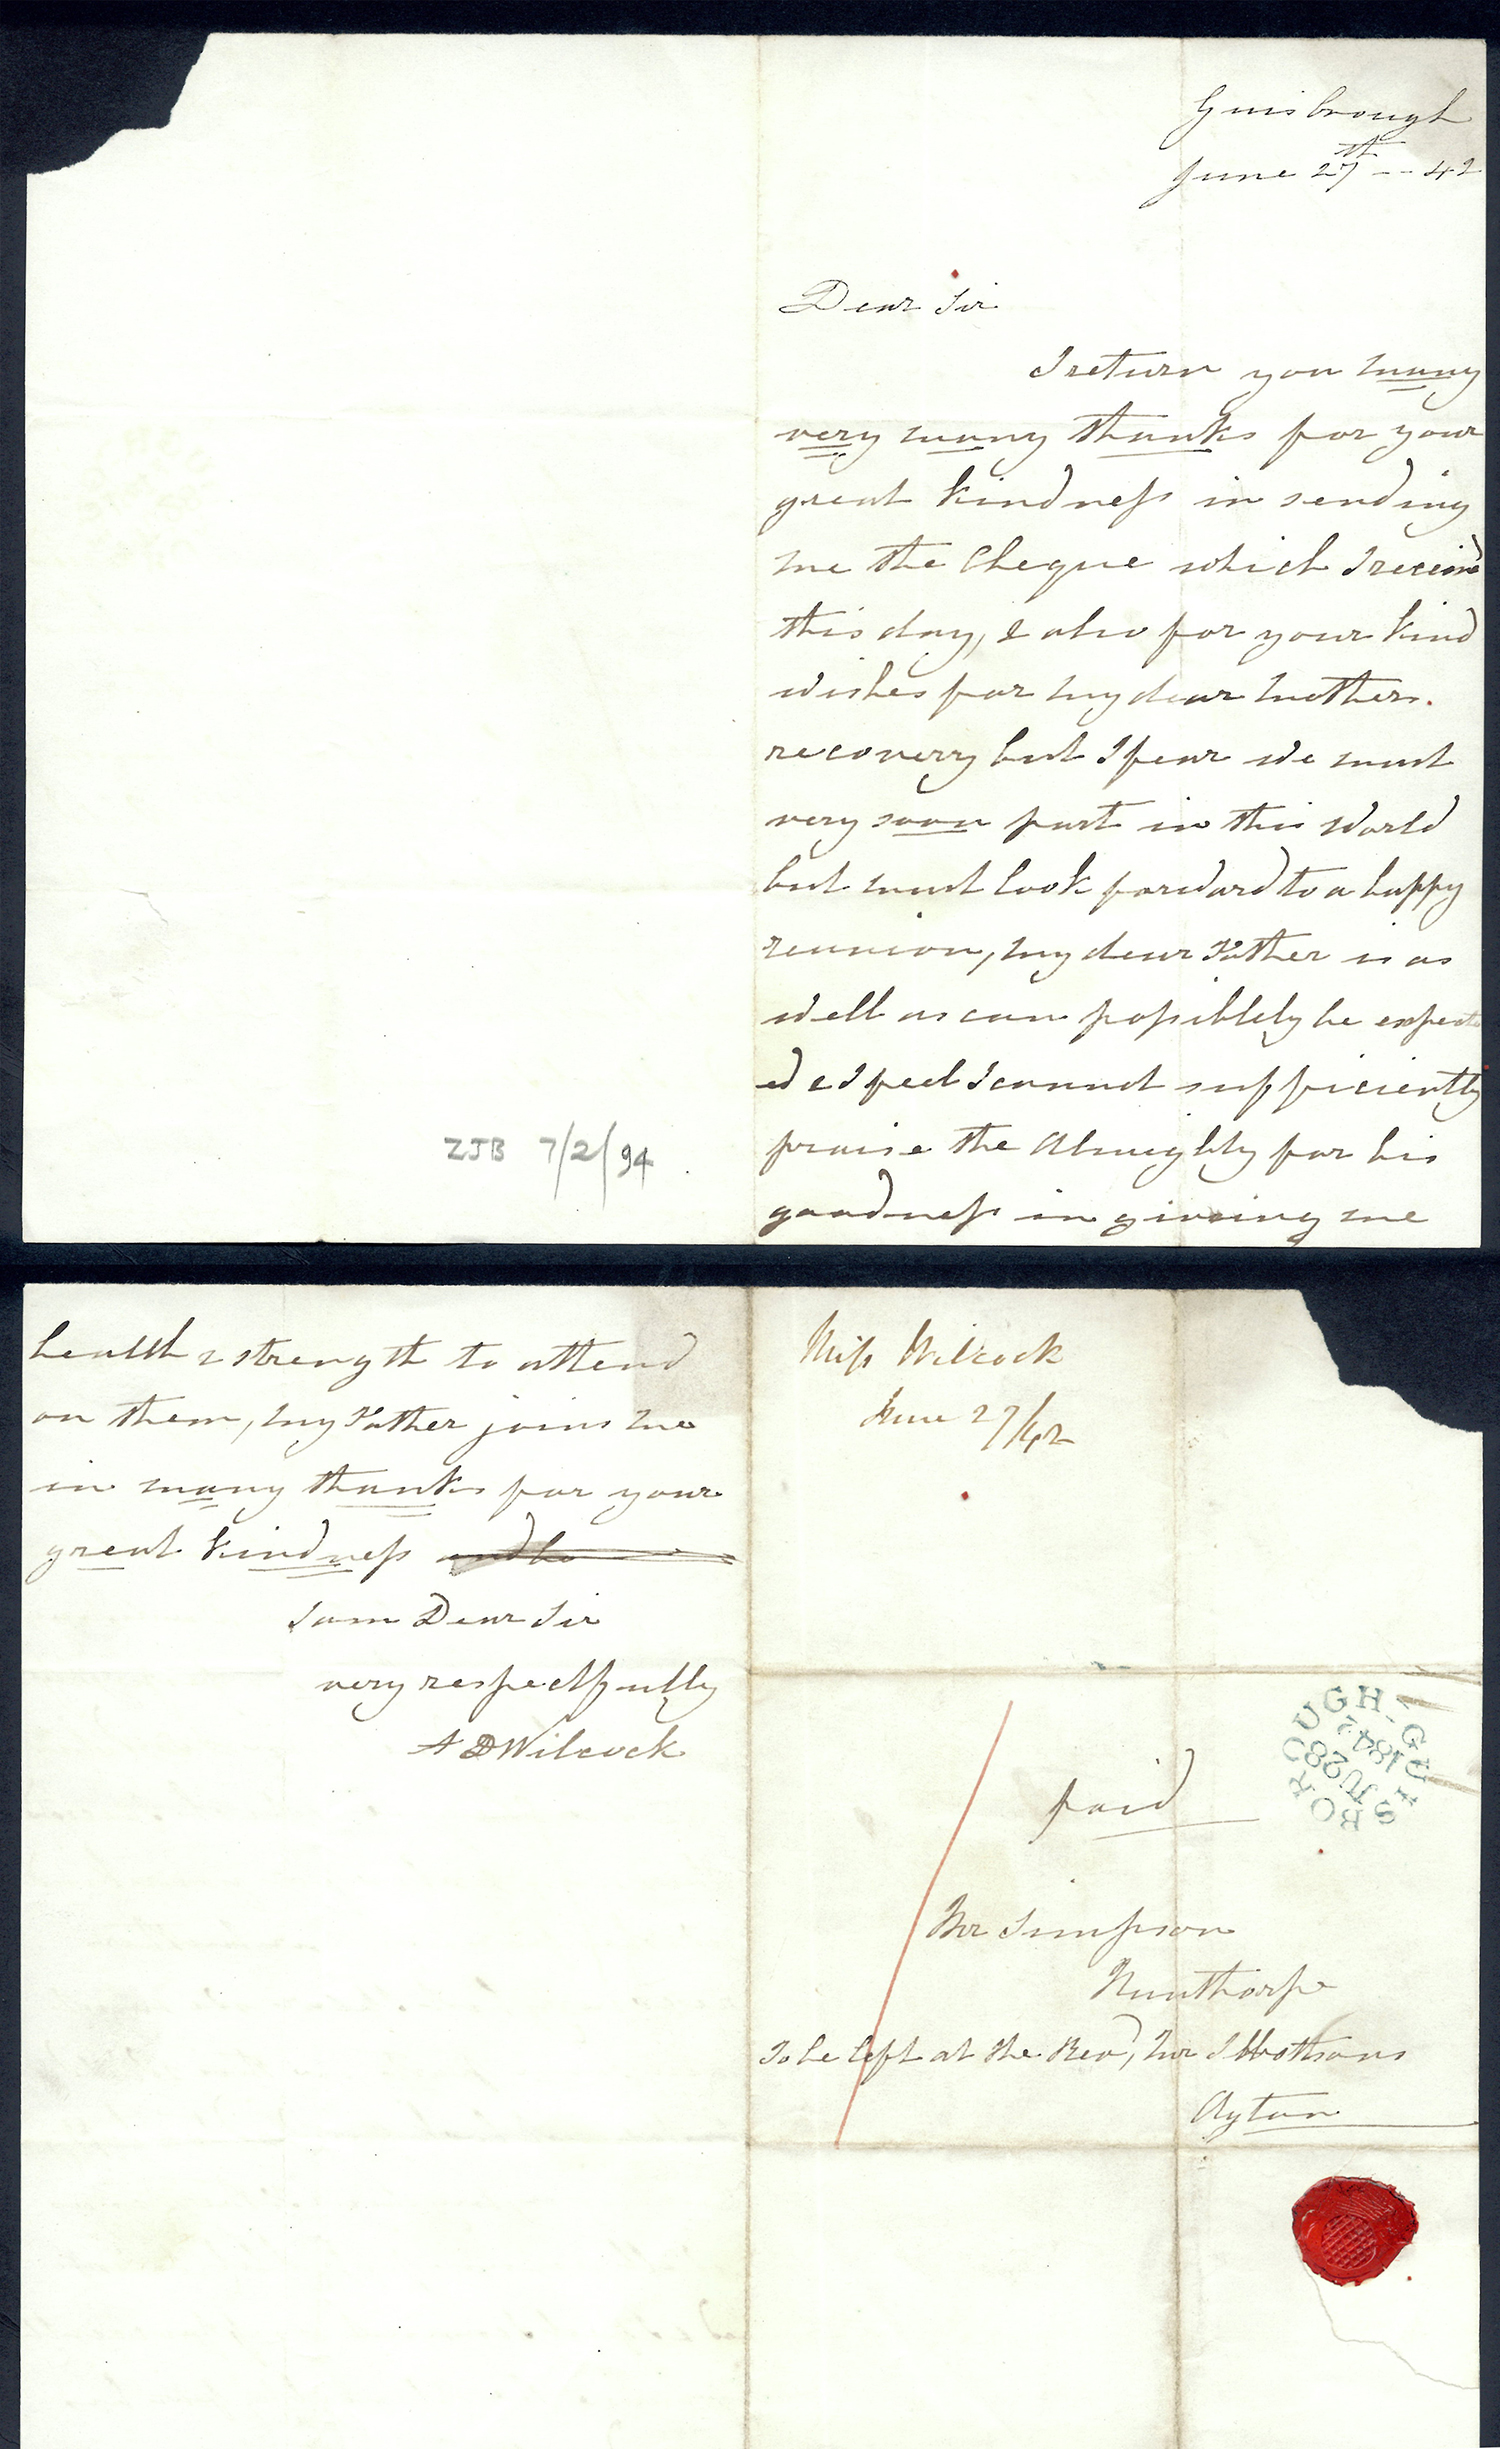 Guisbrough
June 27th -- 42
Dear Sir
I return you many
very many thanks for your
great kindness in sending
me the Cheque which I receivd
this day, & also for your kind
wishes for my dear Mothers.
recovery but I fear we must
very soon part in this World
but must look forward to a happy
reunion, my dear Father is as
well as can possiblely be expect
ed & I feel I cannot sufficiently
praise the Almighty for his
goodness in giveing me
ZJB 7/2/94
health & strength to attend
on them, my Father joins me
in many thanks for your
great kindness
I am Dear Sir
very respectfully
A D Wilcock
Miss Wilcock
June 27/42
GUISBOROUGH
JU 28
1842
paid
Mr Simpson
Nunthorpe
To be left at the Revd, Mr Ibbotsons
Ayton